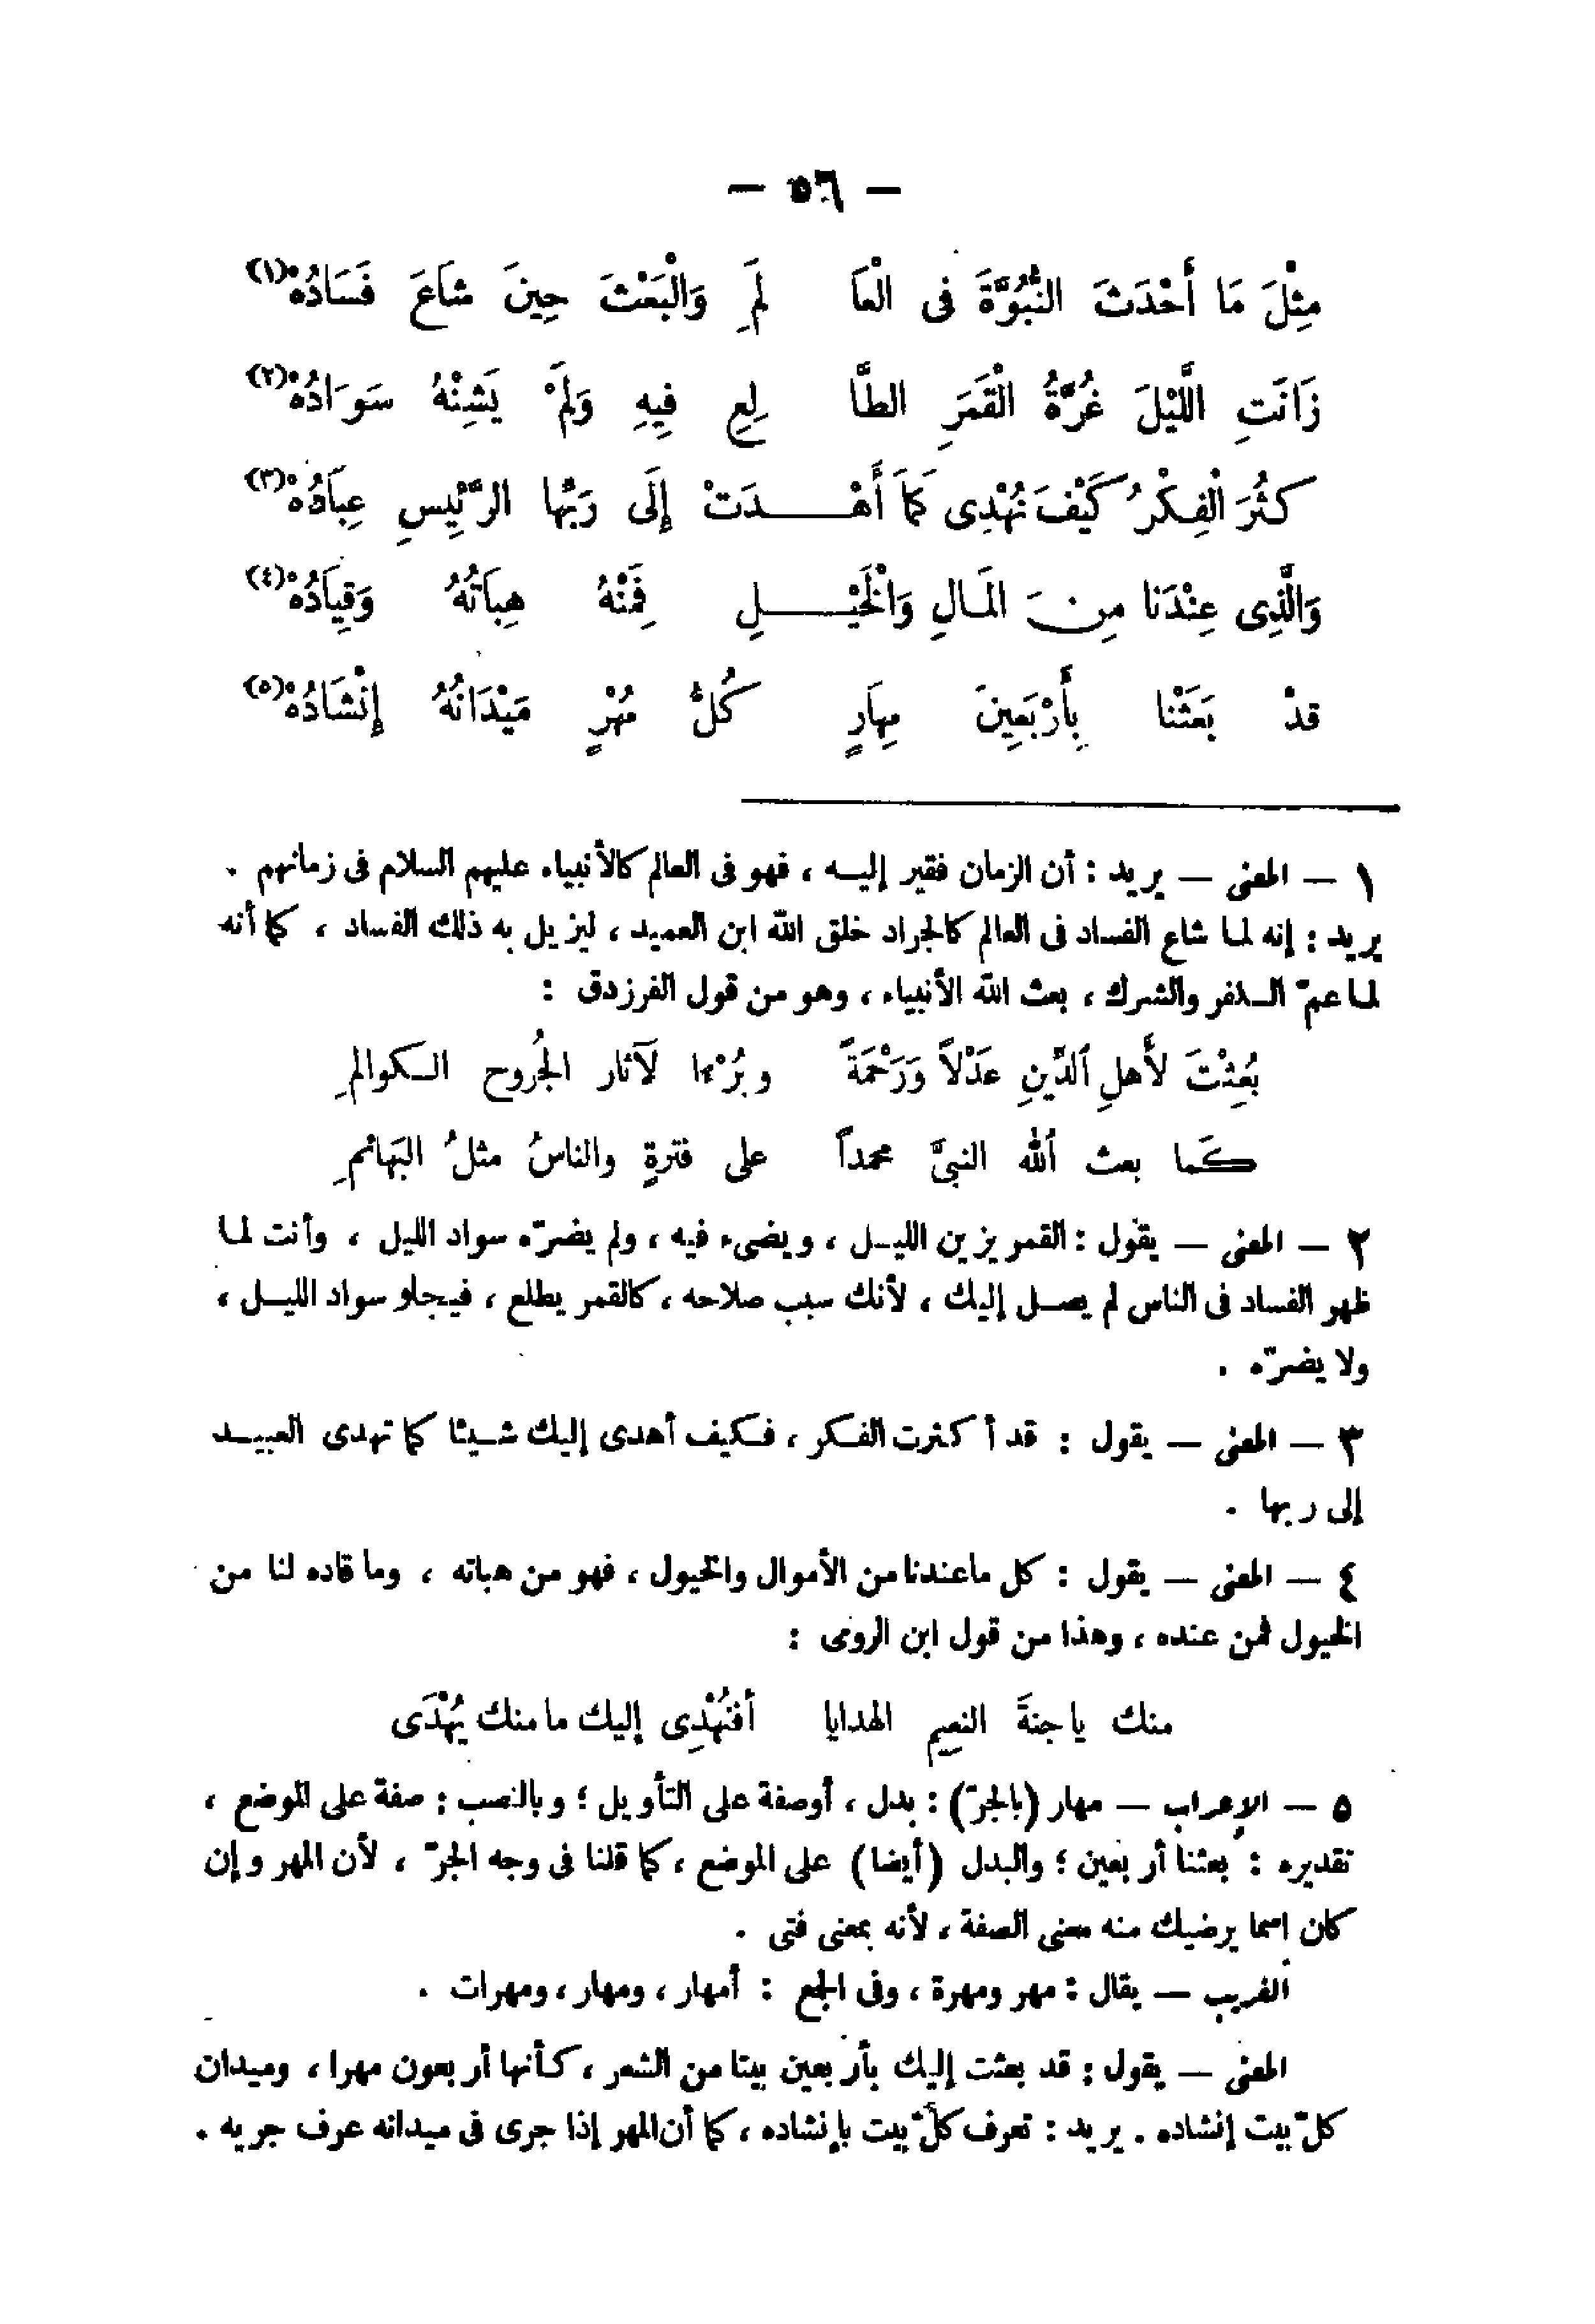 — ٥٦ —
مِثْلَ مَا أَحْدَثَ النُّبُوَّةَ فى الْعَا لَمِ وَالْبَعْثَ حِينَ شَاعَ فَسَادُهْ(١)
زَانَتِ اللَّيْلَ غُرَّةُ الْقَمَرِ الطَّا لِعِ فِيهِ وَلَمْ يَشِنْهُ سَوَادُهْ(٢)
كَثُرَ الْفِكْرُ كَيْفَ نُهْدِى كَمَا أَهْـــدَتْ إِلَى رَبِّهَا الرَّئِيسِ عِبَادُهْ(٣)
وَالَّذِى عِنْدَنَا مِنَ المَـالِ وَالْخَيْـــلِ فَمِنْهُ هِبَاتُهُ وَقِيَادُهْ(٤)
قدْ بَعَثْنَا بِأَرْبَعِينَ مِهَارٍ كُلُّ مُهْرٍ مَيْدَانُهُ إِنْشَادُهْ(٥)
١ — المعنى — يريد : أن الزمان فقير إليـه ، فهو فى العالم كالأنبياء عليهم السلام فى زمانهم .
يريد : إنه لما شاع الفساد فى العالم كالجراد خلق الله ابن العميد ، ليزيل به ذلك الفساد ، كما أنه
لما عمّ الـكفر والشرك ، بعث الله الأنبياء ، وهو من قول الفرزدق :
بُعِثْتَ لأَهلِ الدِّينِ عَدْلاً وَرَحْمَةً وبُرْءًا لآثار الجُروح الـكوالمِ
كَما بعث الله النبىَّ محمداً على فترةٍ والناسُ مثلُ البَهائمِ
٢ — المعنى — يقول : القمر يزين الليـل ، ويضىء فيه ، ولم يضرّه سواد الليل ، وأنت لما
ظهر الفساد فى الناس لم يصـل إليك ، لأنك سبب صلاحه ، كالقمر يطلع ، فيجلو سواد الليـل ،
ولا يضرّه .
٣ — المعنى — يقول : قد أكثرت الفـكر ، فـكيف أهدى إليك شـيئا كما تهدى العبيـد
إلى ربها .
٤ — المعنى — يقول : كل ماعندنا من الأموال والخيول ، فهو من هباته ، وما قاده لنا من
الخيول فمن عنده ، وهذا من قول ابن الرومى :
منك ياجنةَ النعيم الهدايا أفنُهْدِى إليك مامنك يُهْدَى
٥ — الإعراب — مهار (بالجرّ) : بدل ، أوصفة على التأويل ؛ وبالنصب : صفة على الموضع ،
تقديره : بعثنا أربعين ؛ والبدل (أيضا) على الموضع ، كما قلنا فى وجه الجرّ ، لأن المهر وإن
كان اسما يرضيك منه معنى الصفة ، لأنه بمعنى فتى .
الغريب — يقال : مهر ومهرة ، وفى الجمع : أمهار ، ومهار ، ومهرات .
المعنى — يقول : قد بعثت إليك بأربعين بيتا من الشعر ، كـأنها أربعون مهرا ، وميدان
كلّ بيت إنشاده . يريد : تعرف كلّ بيت بإنشاده ، كما أن المهر إذا جرى فى ميدانه عرف جريه .